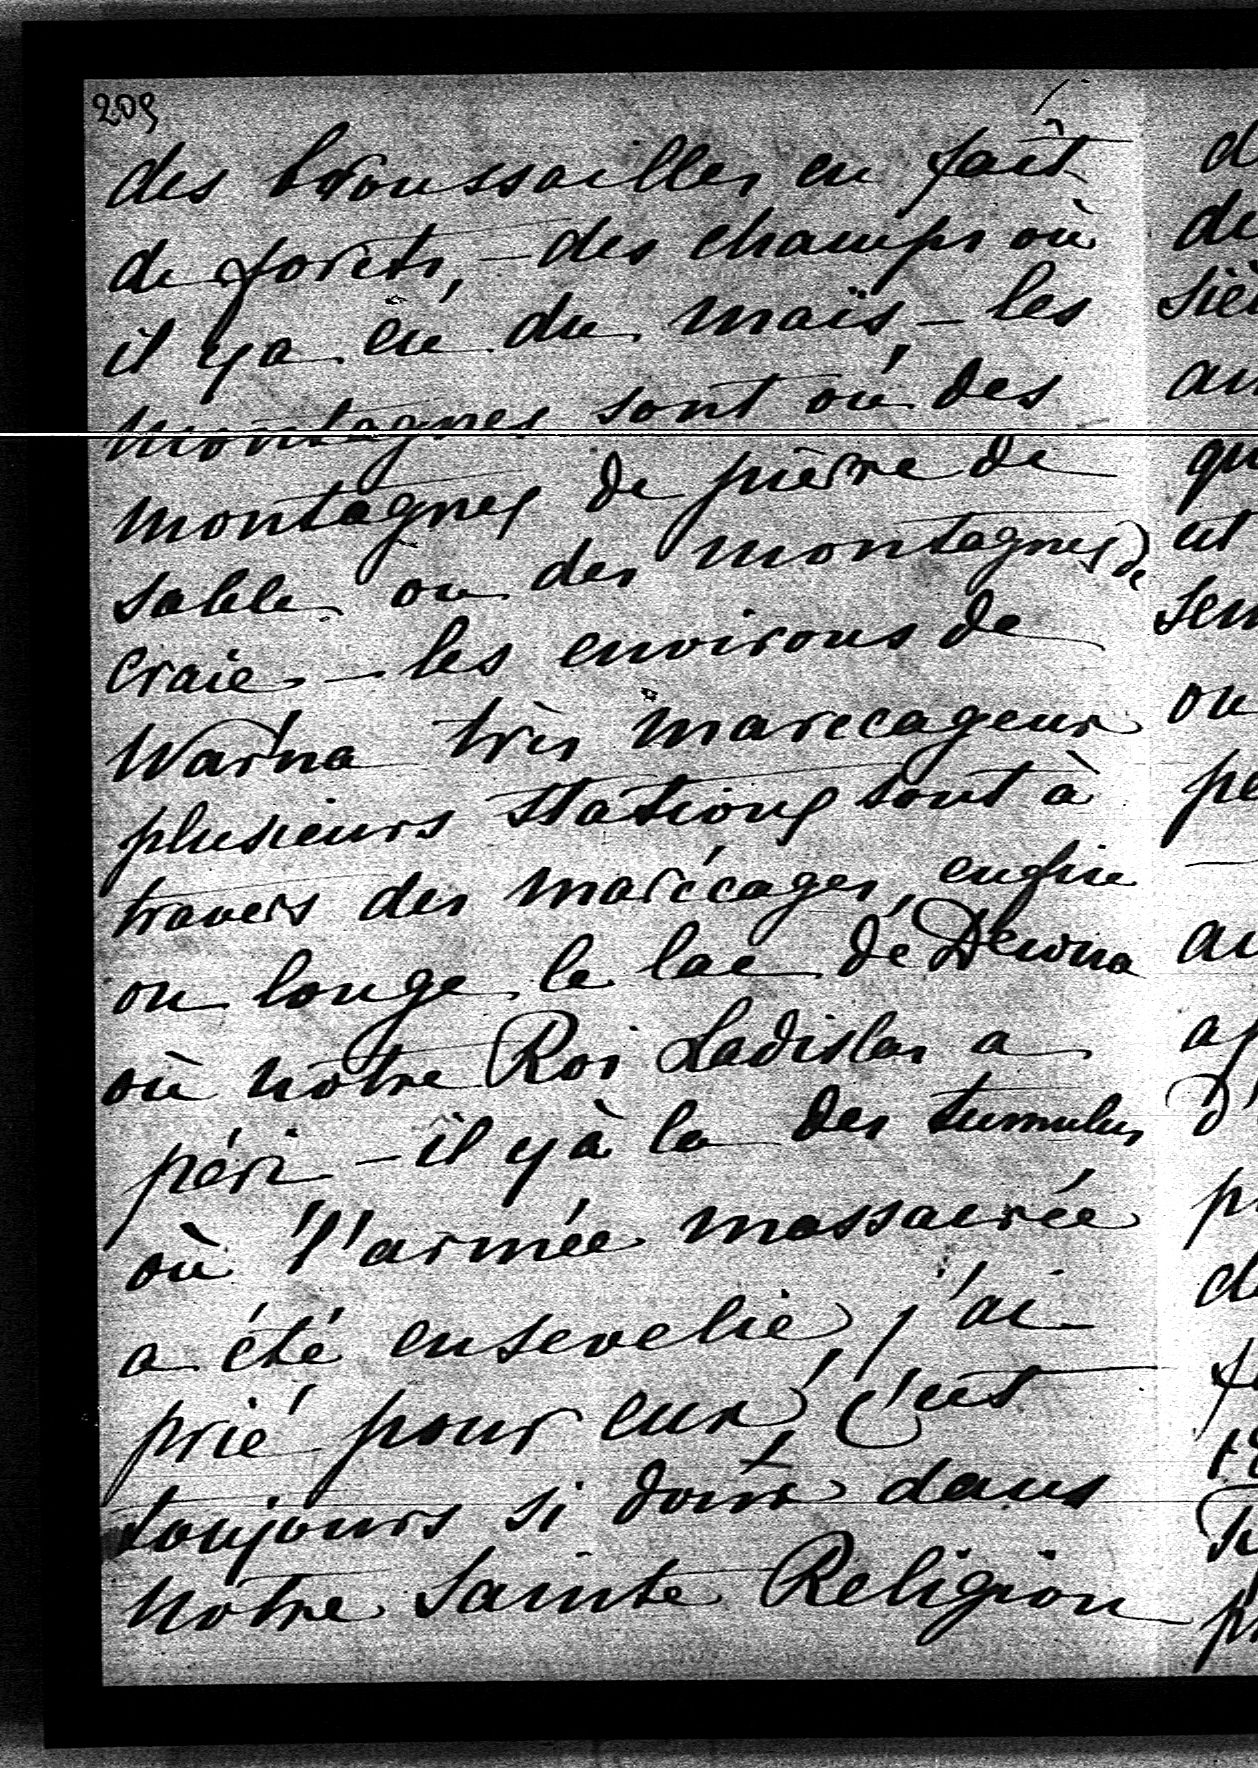 209
des broussailles en fait
de forèts, – des champs où
il y a eu du maïs – les
montagnes sont ou des
montagnes de pièrre de
sable ou des montagnes de
craie – les environs de
Warna très marecageux
plusieurs stations sont à
travers des marécages, enfin
on longe le lac de Dewna
où notre Roi Ladislas a
péri – il y à la des tumulus
où l'armée massacrée
a été ensevelie, j'ai
prié pour eux, c'est
toujours si doux dans
notre Sainte Religion